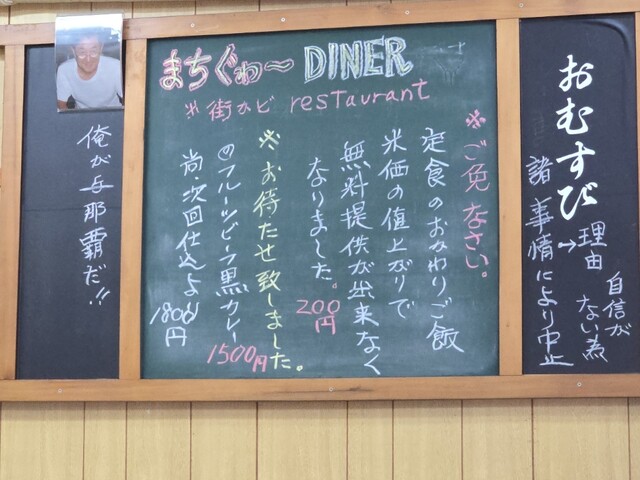 まちぐゎ～ DINER
※街かど restaurant
※ご免なさい。
定食のおかわりご飯
米価の値上がりで
無料提供が出来なく
なりました。
200円
※お待たせ致しました。
のフルーツビーフ黒カレー
1500円
尚・次回仕込より
1800円
おむすび
諸事情により中止
→理由
自信が
ない為
俺が与那覇だ!!